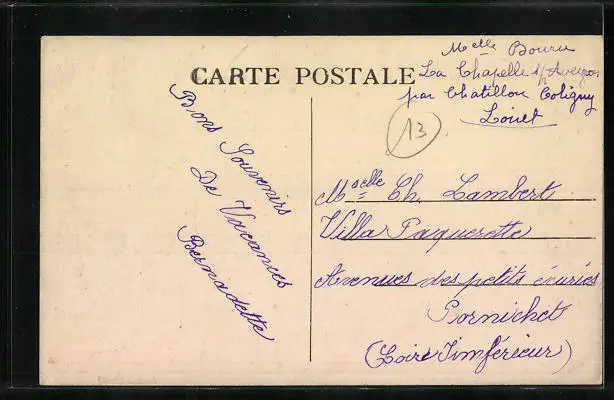 CARTE POSTALE
Melle Bouru
La Chapelle s/Aveyron
par Chatillon Coligny
Loiret
13
Bons Souvenirs
De Vacances
Bernadette
Mselle Ch. Lambert
Villa Paquerette
Avenues des petits écuries
Pornichet
(Loire Inférieur)